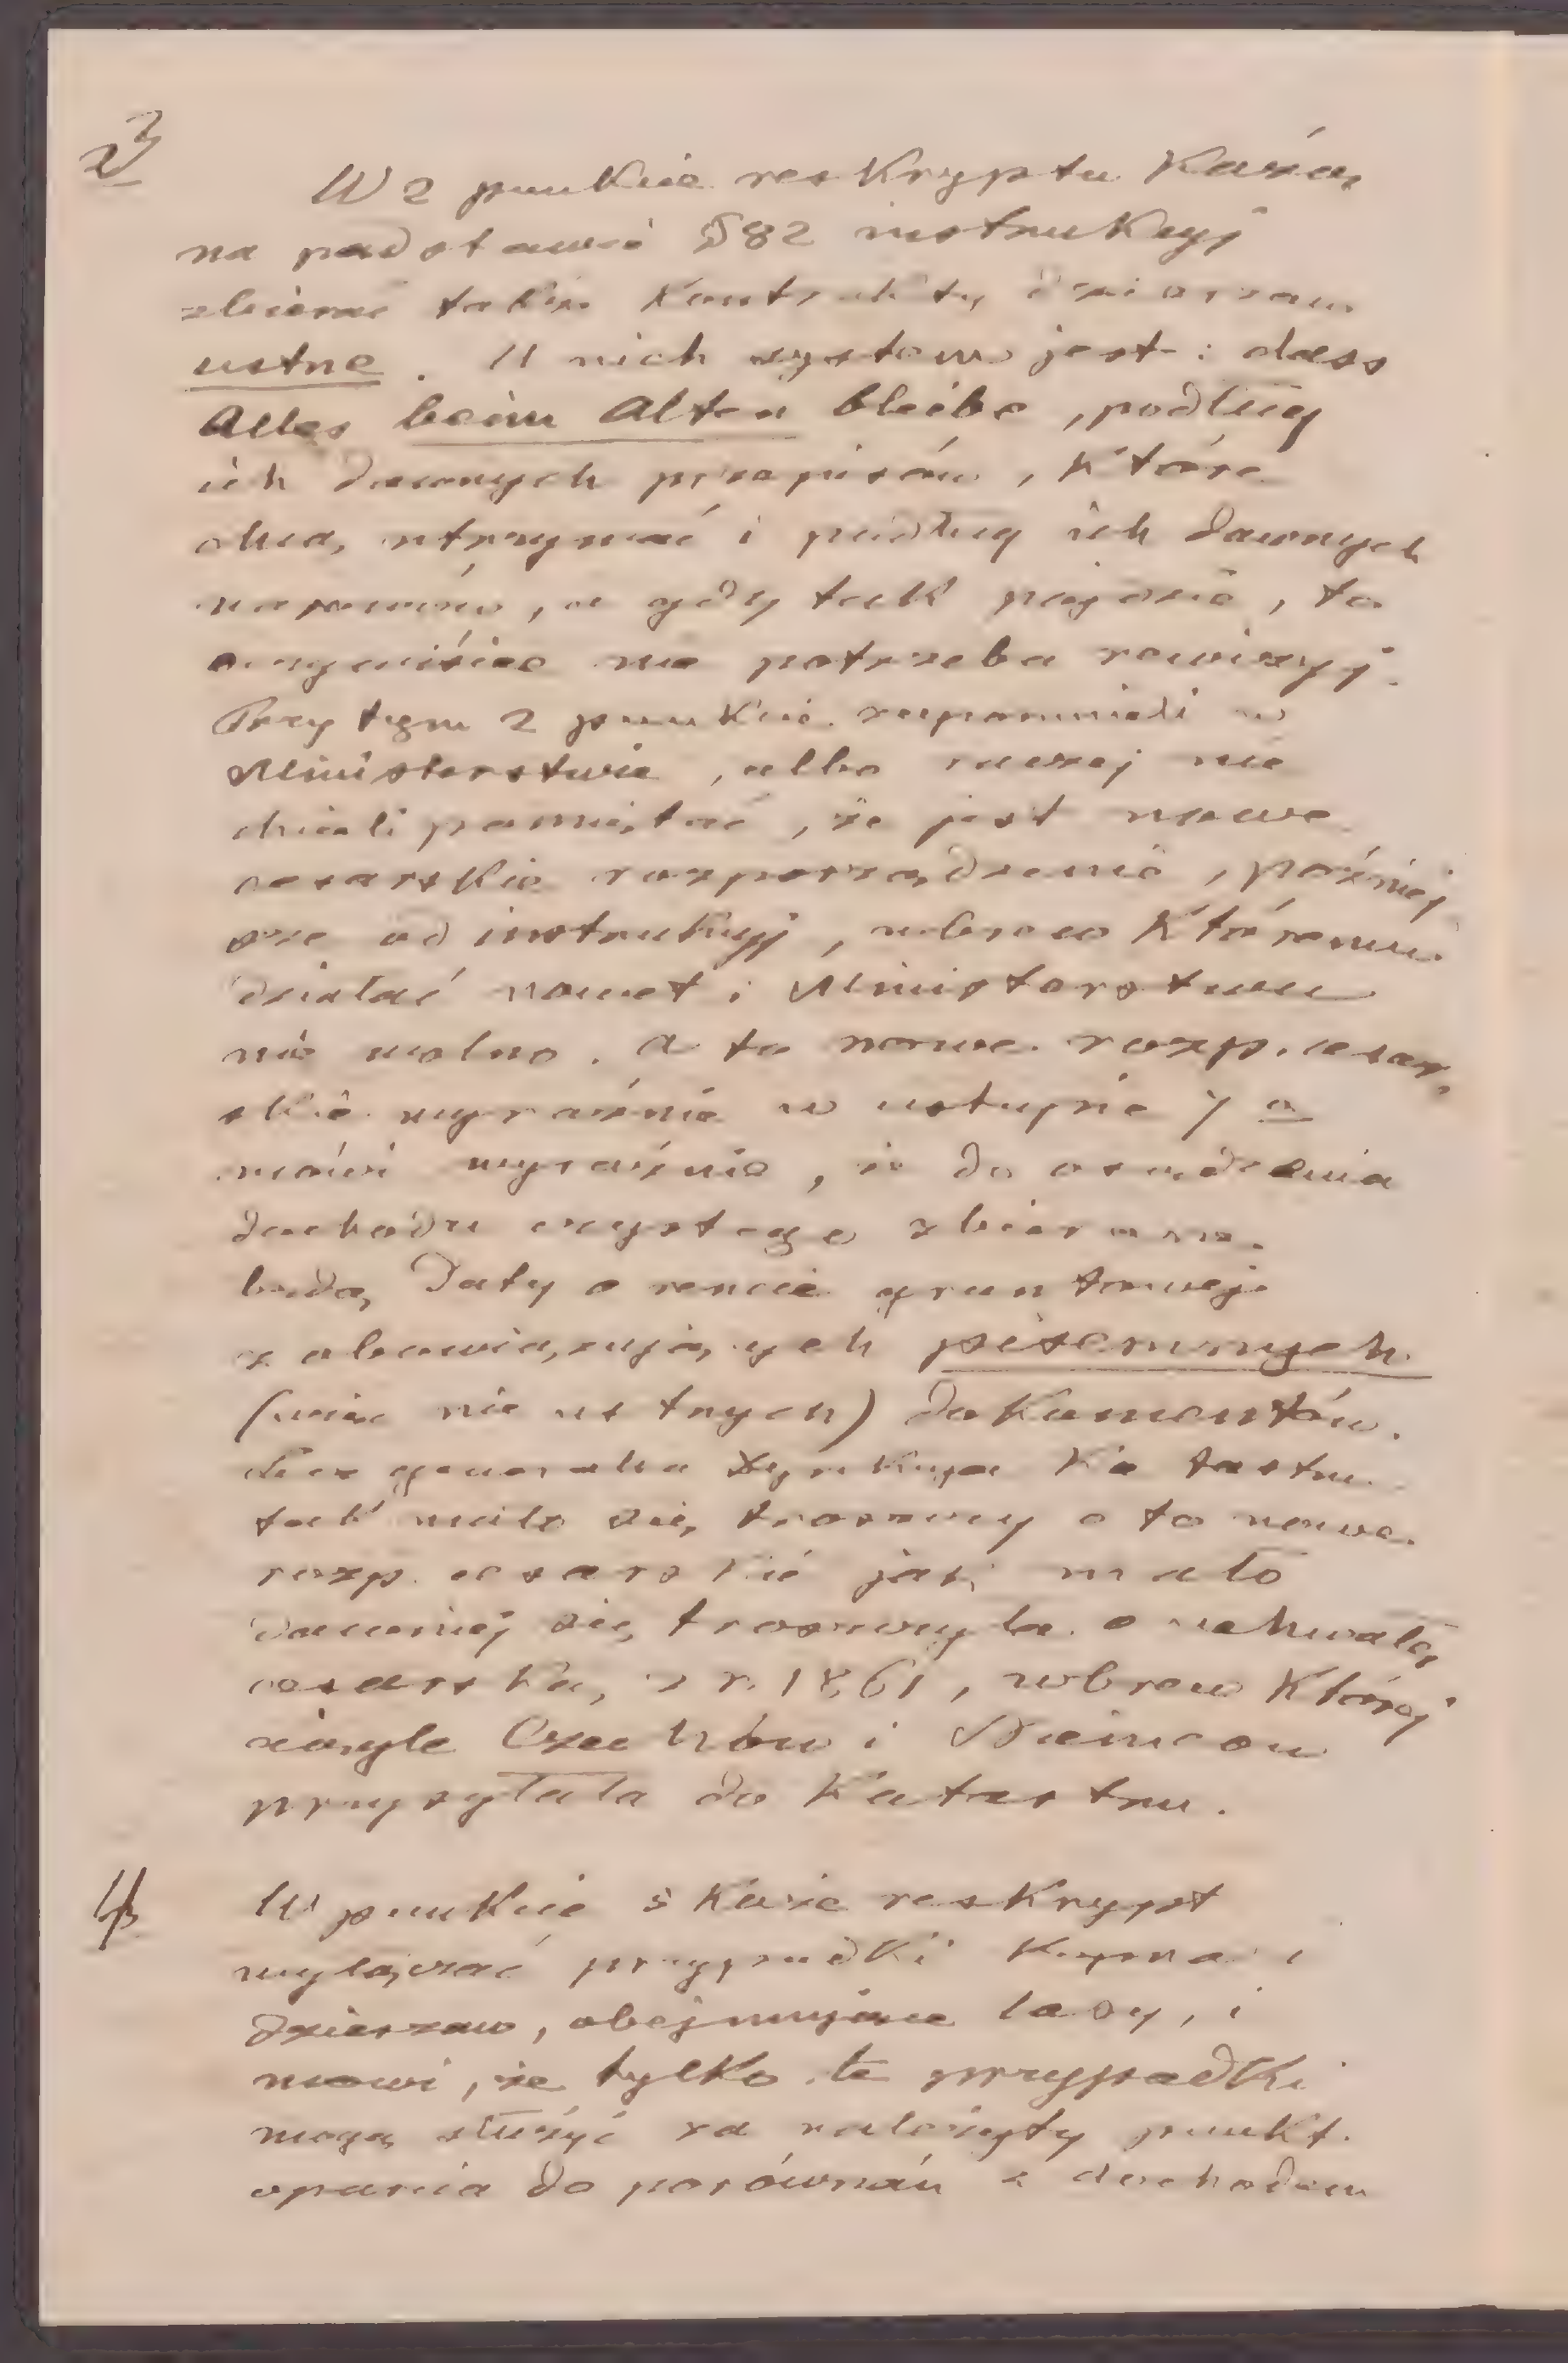 3
W 2 punkcie reskryptu każą,
na podstawie §82 instrukcyj
zbierać także kontrakty dzierżaw
ustne. U nich system jest: dass
Alles beim Alten bleibe, podług
ich dawnych przepisów, które
chcą utrzymać i podług ich dawnych
, a gdy tak pójdzie, to
oczywiście nie potrzeba rewizyj.
Przy tym 2 punkcie zapomnieli w
Ministerstwie, albo raczej nie
chcieli pamiętać, że jest nowe
cesarskie rozporządzenie, później
sze od instrukcyj, wbrew któremu
działać nawet i Ministerstwu
nie wolno. A to nowe rozp. cesar,
skie wyraźnie w ustępie 7 a
mówi wyraźnie, że do osądzenia
dochodu czystego zbierane
będą, Daty o rencie gruntowej
z obowiązujących pisemnych
(więc nie ustnych) dokumentów.
Lecz generalna Dyrekcya Katastru
tak mało się troszczy o to nowe
rozp. cesarskie jak mało
dawniej się troszczyła o uchwałę
cesarską z r. 1861, wbrew której
ciągle Czechów i Niemców
przysyłała do Katastru.
4
W punkcie 3 każe reskrypt
wyłączać przypadki kupna i
dzierżaw, obejmujące lasy, i
mówi, że tylko te przypadki
mogą służyć za należyty punkt
oparcia do porównań z dochodem